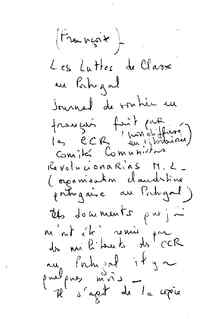 (Français)_
Les Luttes de Classe
au Portugal
Journal de soutien en
français fait par
(non diffusé
les CCR en librairie)
Comités Communistas
Revolucionarias M.L.
(organisation clandestine
portugaise au Portugal)
documents que j'ai
m'ont été remis par
des militants des CCR
au Portugal il y a
quelques mois _
Il s'agit de la copie